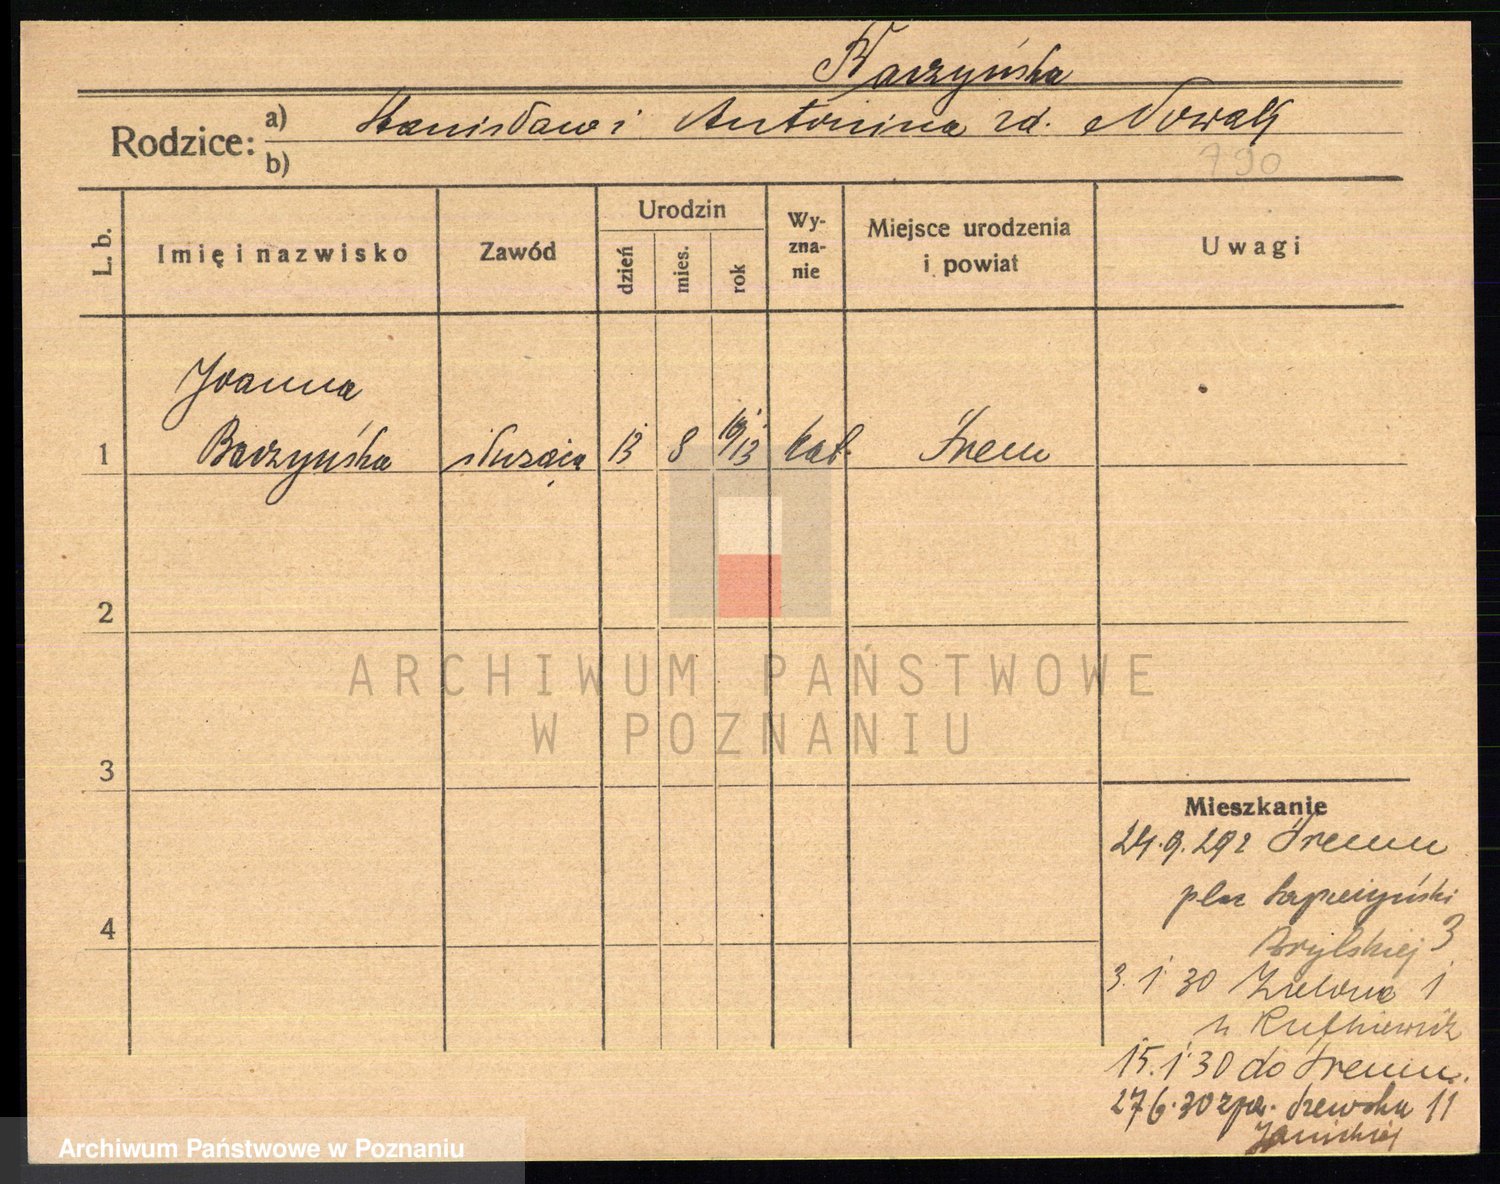 Baczyńska
Rodzice: a) Stanisław i Antonina rd. Nowak
b)
790
L. b.
Imię i nazwisko
Zawód
Urodzin
dzień
mies.
rok
Wy-
zna-
nie
Miejsce urodzenia
i powiat
Uwagi
Joanna
1 Baczyńska służąca 13 8 1913 kat. Śrem
2
3
4
Mieszkanie
24.9.29 z Śremu
plac Sapieżyński
3
3.1.30 Zielona 1
u
15.1.30 do Śremu.
27.6.30 zpr. Szewska 11
Janickiej
ARCHIWUM PAŃSTWOWE
W POZNANIU
Archiwum Państwowe w Poznaniu